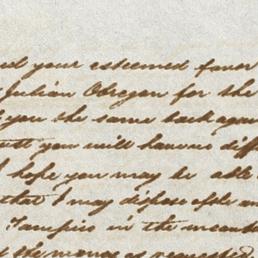 your esteemed favor
Julian Obregon for the
you the same back again
you will have no diff
I hope you may be able
that I may dispose of the
Tampico in the meant
the